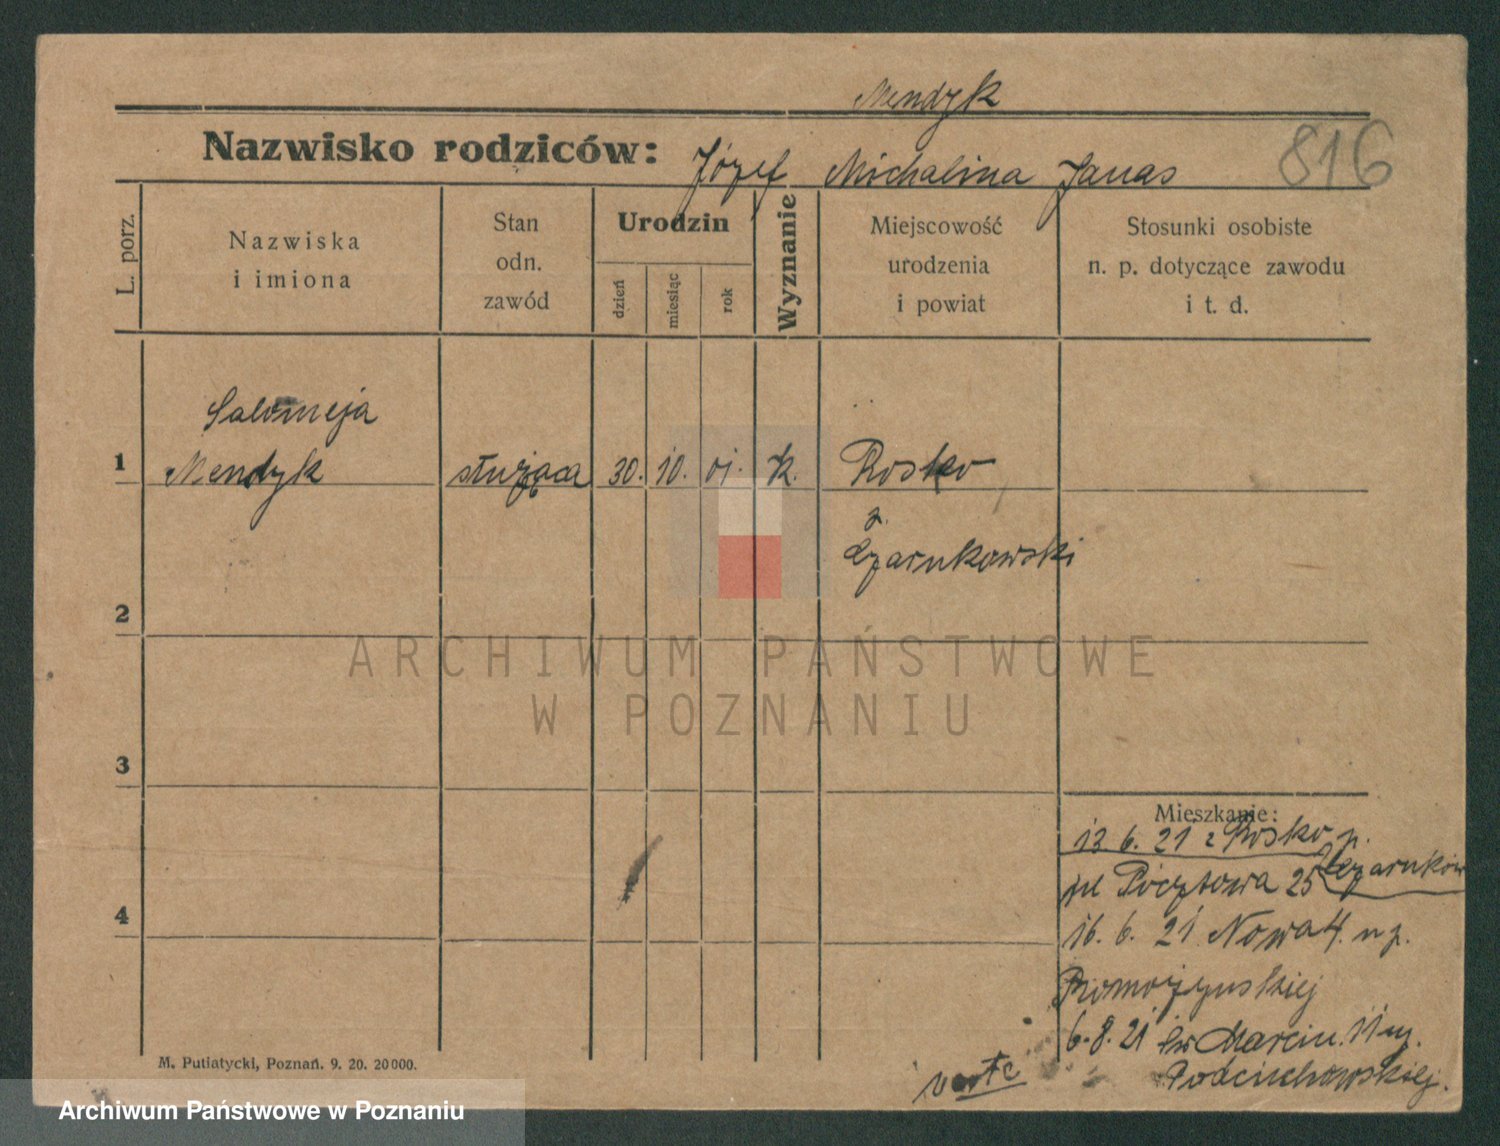 Mendyk
Nazwisko rodziców: Józef Michalina Janas
816
L. porz.
Nazwiska
i imiona
Stan
odn.
zawód
Urodzin
dzień
miesiąc
rok
Wyznanie
Miejscowość
urodzenia
i powiat
Stosunki osobiste
n. p. dotyczące zawodu
i t. d.
Salomeja
1 Mendyk służąca 30. 10. 01. k. Rosko
p.
Czarnkowski
2
3
4
Mieszkanie:
13 6. 21 z Rosko p.
Czarnków
ul Pocztowa 25
16. 6. 21 Nowa 4. u p.
6. 8. 21 św Marcin. 11 u p.
verte
M. Putiatycki, Poznań. 9. 20. 20000.
ARCHIWUM PAŃSTWOWE
W POZNANIU
Archiwum Państwowe w Poznaniu